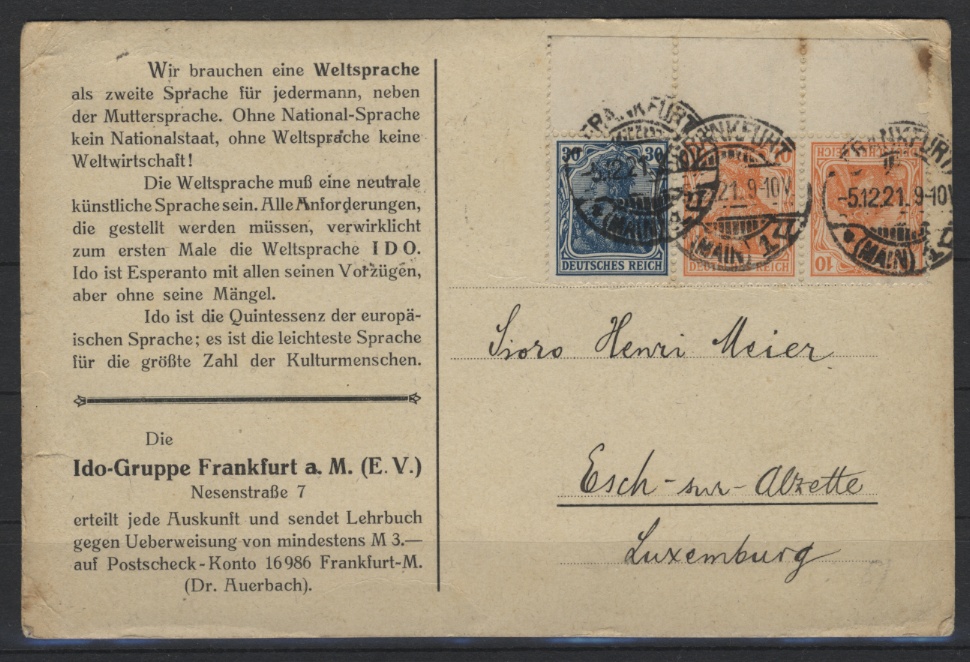 Wir brauchen eine Weltsprache
als zweite Sprache für jedermann, neben
der Muttersprache. Ohne National-Sprache
kein Nationalstaat, ohne Weltsprache keine
Weltwirtschaft!
Die Weltsprache muß eine neutrale
künstliche Sprache sein. Alle Anforderungen,
die gestellt werden müssen, verwirklicht
zum ersten Male die Weltsprache IDO.
Ido ist Esperanto mit allen seinen Vorzügen,
aber ohne seine Mängel.
Ido ist die Quintessenz der europä-
ischen Sprache; es ist die leichteste Sprache
für die größte Zahl der Kulturmenschen.
Die
Ido-Gruppe Frankfurt a. M. (E. V.)
Nesenstraße 7
erteilt jede Auskunft und sendet Lehrbuch
gegen Ueberweisung von mindestens M 3.—
auf Postscheck-Konto 16986 Frankfurt-M.
(Dr. Auerbach).
30 30
DEUTSCHES REICH
DEUTSCHES REICH
DEUTSCHES REICH
10
FRANKFURT
-5.12.21. 9-10V
(MAIN) 1
FRANKFURT
12.21. 9-10V
(MAIN) 1
FRANKFURT
-5.12.21. 9-10V
(MAIN) 1
Sioro Henri Meier
Esch-sur-Alzette
Luxemburg